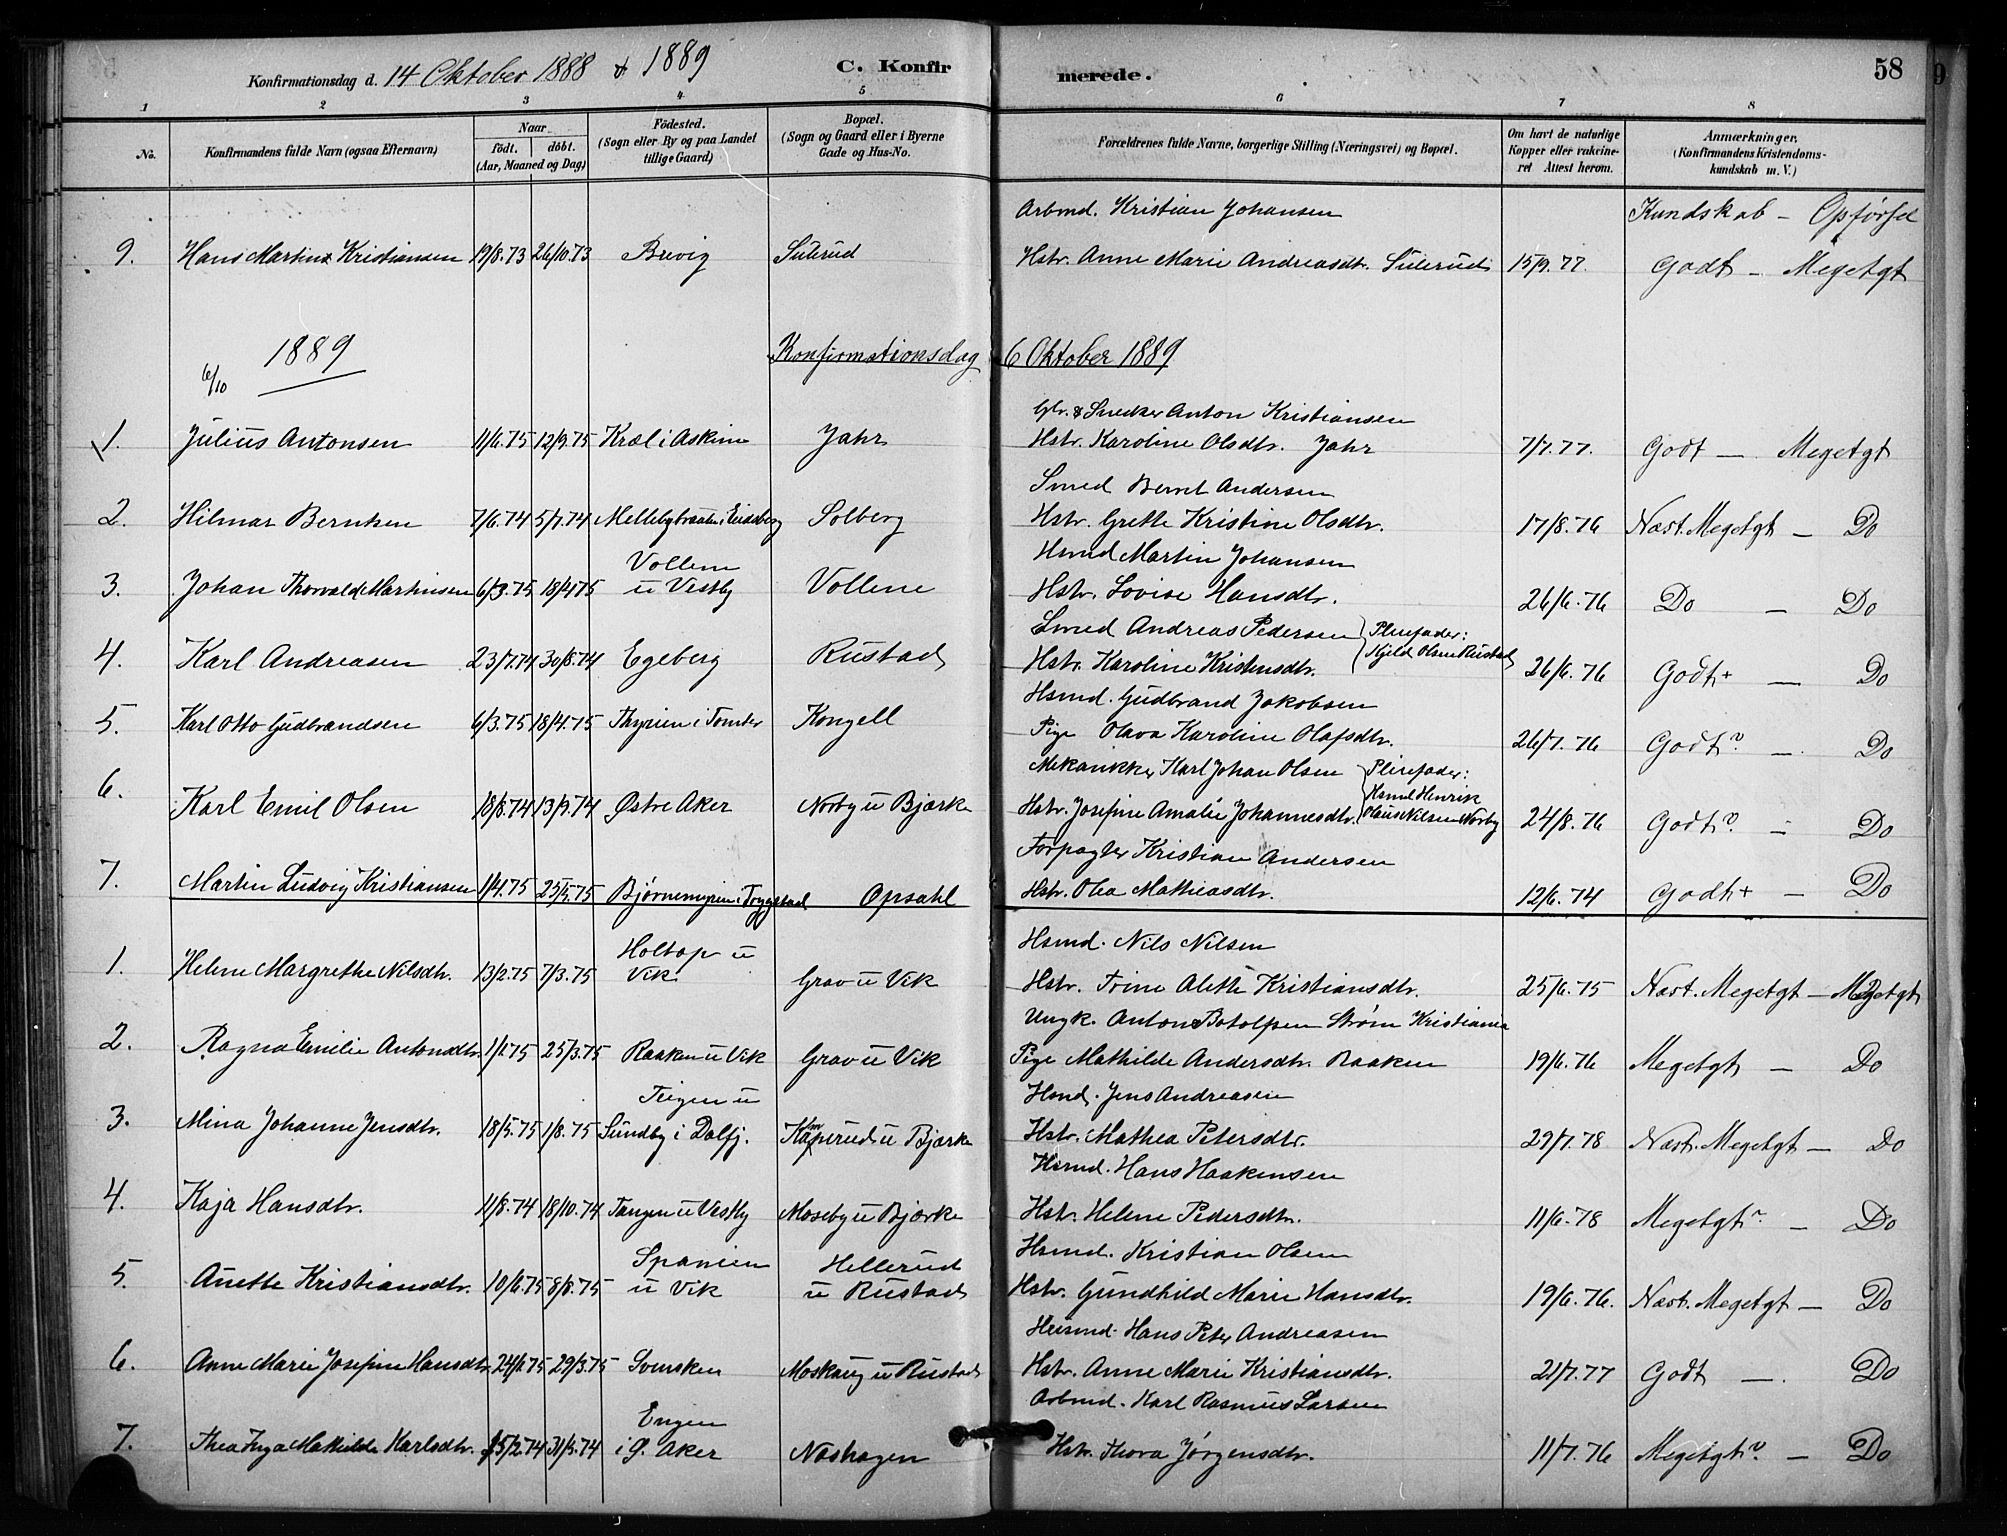 Konfirmationsdag d. 14 Oktober 1888 & 1889 C. Konfirmerede. 58
1 2 3 4 5 6 7 8
No. Konfirmandens fulde Navn (ogsaa Efternavn) Naar födt. döbt. (Aar, Maaned og Dag) Födested. (Sogn eller By og paa Landet tillige Gaard) Bopæl. (Sogn og Gaard eller i Byerne Gade og Hus-No. Forældrenes fulde Navne, borgerlige Stilling (Næringsvei) og Bopæl. Om havt de naturlige Kopper eller vakcineret Attest herom. Anmærkninger, (Konfirmandens Kristendomskundskab m. V.)
Arbmd. Kristian Johansen Kundskab – Opförsel
9. Hans Martin Kristiansen 19/8.73 26/10.73 Brevig Sulerud Hstr. Anne Marie Andreasdtr. Sulerud 15/9.77. Godt – Megetgt
1889 Konfirmationsdag 6 Oktober 1889
6/10
Gbr. & Snedker Anton Kristiansen
1. Julius Antonsen 11/6.75 12/9.75 Kræl i Askim Jahr Hstr. Karoline Olsdtr. Jahr 7/7.77. Godt – Megetgt
Smed Bernt Andersen
2. Hilmar Berntsen 7/6.74 5/7.74 Mellebybraaten i Eidsberg Solberg Hstr. Grette Kristine Olsdtr. 17/8.76 Næst. Megetgt – Do
Hsmd Martin Johansen
3. Johan Thorvald Martinsen 6/3.75 18/4 75 Vollene u Vestby Vollene Hstr. Lovise Hansdtr. 26/6.76 Do – Do
Smed Andreas Pedersen Pleiefader:
4. Karl Andreasen 23/7.74 30/8.74 Egeberg Rustad Hstr. Karoline Kristensdtr. Kjeld Olsen Rustad 26/6.76 Godt+ – Do
Hsmd. Gudbrand Jakobsen
5. Karl Otto Gudbrandsen 6/3.75 18/4.75 Thyrien i Tomter Kongell Pige Olava Karoline Olafsdtr. 26/7.76 Godt – Do
Mekanikker Karl Johan Olsen Pleiefader: Hsmd Henrik
6. Karl Emil Olsen 18/6.74 13/9.74 Østre Aker Norby u Bjærke Hstr. Josefine Amalie Johannesdtr. Olaus Nilsen Norby 24/8.76 Godt – Do
Forpagter Kristian Andersen
7. Martin Ludvig Kristiansen 1/4.75 25/5.75 Bjørnemyrin i Trygstad Opsahl Hstr. Olea Mathiasdtr. 12/6.74 Godt+ – Do
Hsmd. Nils Nilsen
1. Helene Margrethe Nilsdtr. 13/2.75 7/3.75 Holtop u Vik Grav u Vik Hstr. Trine Alette Kristiansdtr. 25/6.75 Næst. Megetgt – Megetgt
Ungk. Anton Botolfsen Strøm Kristiania
2. Ragna Emilie Antonsdtr. 1/1.75 25/3.75 Raaken u Vik Grav u Vik Pige Mathilde Andersdtr. Raaken 19/6.76 Megetgt – Do
Hsmd. Jens Andreasen
3. Mina Johanne Jensdtr. 18/5.75 1/8.75 Teigen u Sundby i Dalfj. Kamperud u Bjærke Hstr. Mathea Petersdtr. 29/7.78 Næst. Megetgt – Do
Hsmd. Hans Haakensen
4. Kaja Hansdtr. 11/8.74 18/10.74 Tangen u Vestby Moseby u Bjørke Hstr. Helene Pedersdtr. 11/6.78 Megetgt – Do
Hsmd. Kristian Olsen
5. Anette Kristiansdtr. 10/6.75 8/8.75 Spanien u Vik Hellerud u Rustad Hstr. Gundhild Marie Hansdtr. 19/6.76. Næst. Megetgt – Do
Husmd. Hans Peter Andreasen
6. Anne Marie Josefine Hansdtr 24/1.75 29/3.75 Svensken Moskaug u Rustad Hstr. Anne Marie Kristiansdtr. 21/7.77 Godt – Do
Arbmd. Karl Rasmus Larsen
7. Thea Inga Mathilde Karlsdtr. 15/2.74 31/5.74 Engen i Ø. Aker Næshagen Hstr. Thora Jørgensdtr. 11/7.76 Megetgt – Do